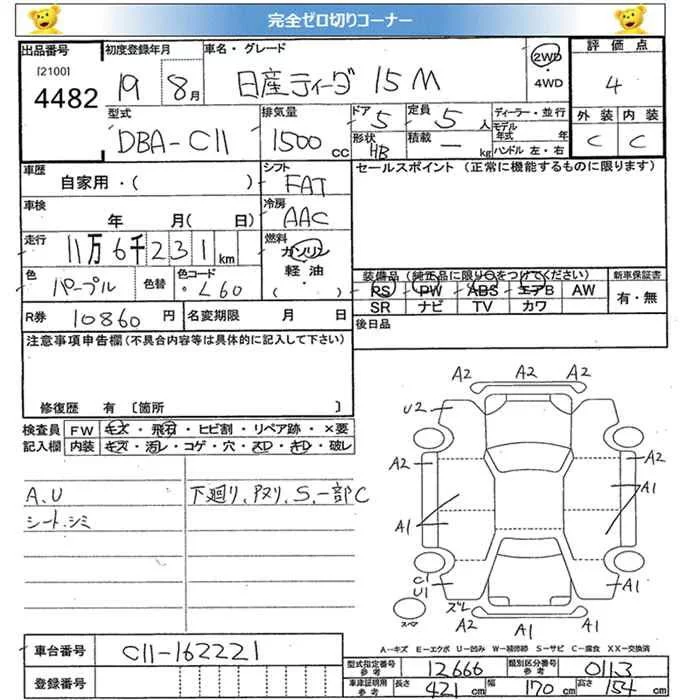 完全ゼロ切りコーナー
出品番号 初度登録年月 車名・グレード 2WD 評価点
[2100]
4482 19 8月 日産ティーダ 15M 4WD 4
型式 排気量 ドア 定員 ディーラー・並行 外装 内装
DBA-C11 1500cc 5 5人 モデル年式 年 C C
形状 HB 積載 - kg ハンドル 左・右
車歴 シフト セールスポイント (正常に機能するものに限ります)
自家用・( ) FAT
車検 冷房
年 月( 日) AAC
走行 燃料
11万6千231km ガソリン
色 色替 色コード 軽油 装備品 (純正品に限り○をつけてください) 新車保証書
パープル ・L60 ・( ) PS PW ABS エアB AW 有・無
SR ナビ TV カワ
R券 10860円 名変期限 月 日 後日品
注意事項申告欄(不具合内容等は具体的に記入して下さい)
修復歴 有 [箇所 ]
検査員 FW キズ・飛石・ヒビ割・リペア跡・×要
記入欄 内装 キズ・汚レ・コゲ・穴・スレ・キレ・破レ
A、U 下廻り、アヌリ、S、一部C
シート、シミ
A2 A1 A2
U2
A2 A2
A1 A1
C1
U1 ズレ A1
スペア A2 A1 A1
A-キズ E-エクボ U-凹み W-補修跡 S-サビ C-腐食 XX-交換済
車台番号 C11-162221
登録番号
型式指定番号 参考 12666 類別区分番号 参考 0113
車庫証明用 参考 長さ 421cm 幅 170cm 高さ 154cm